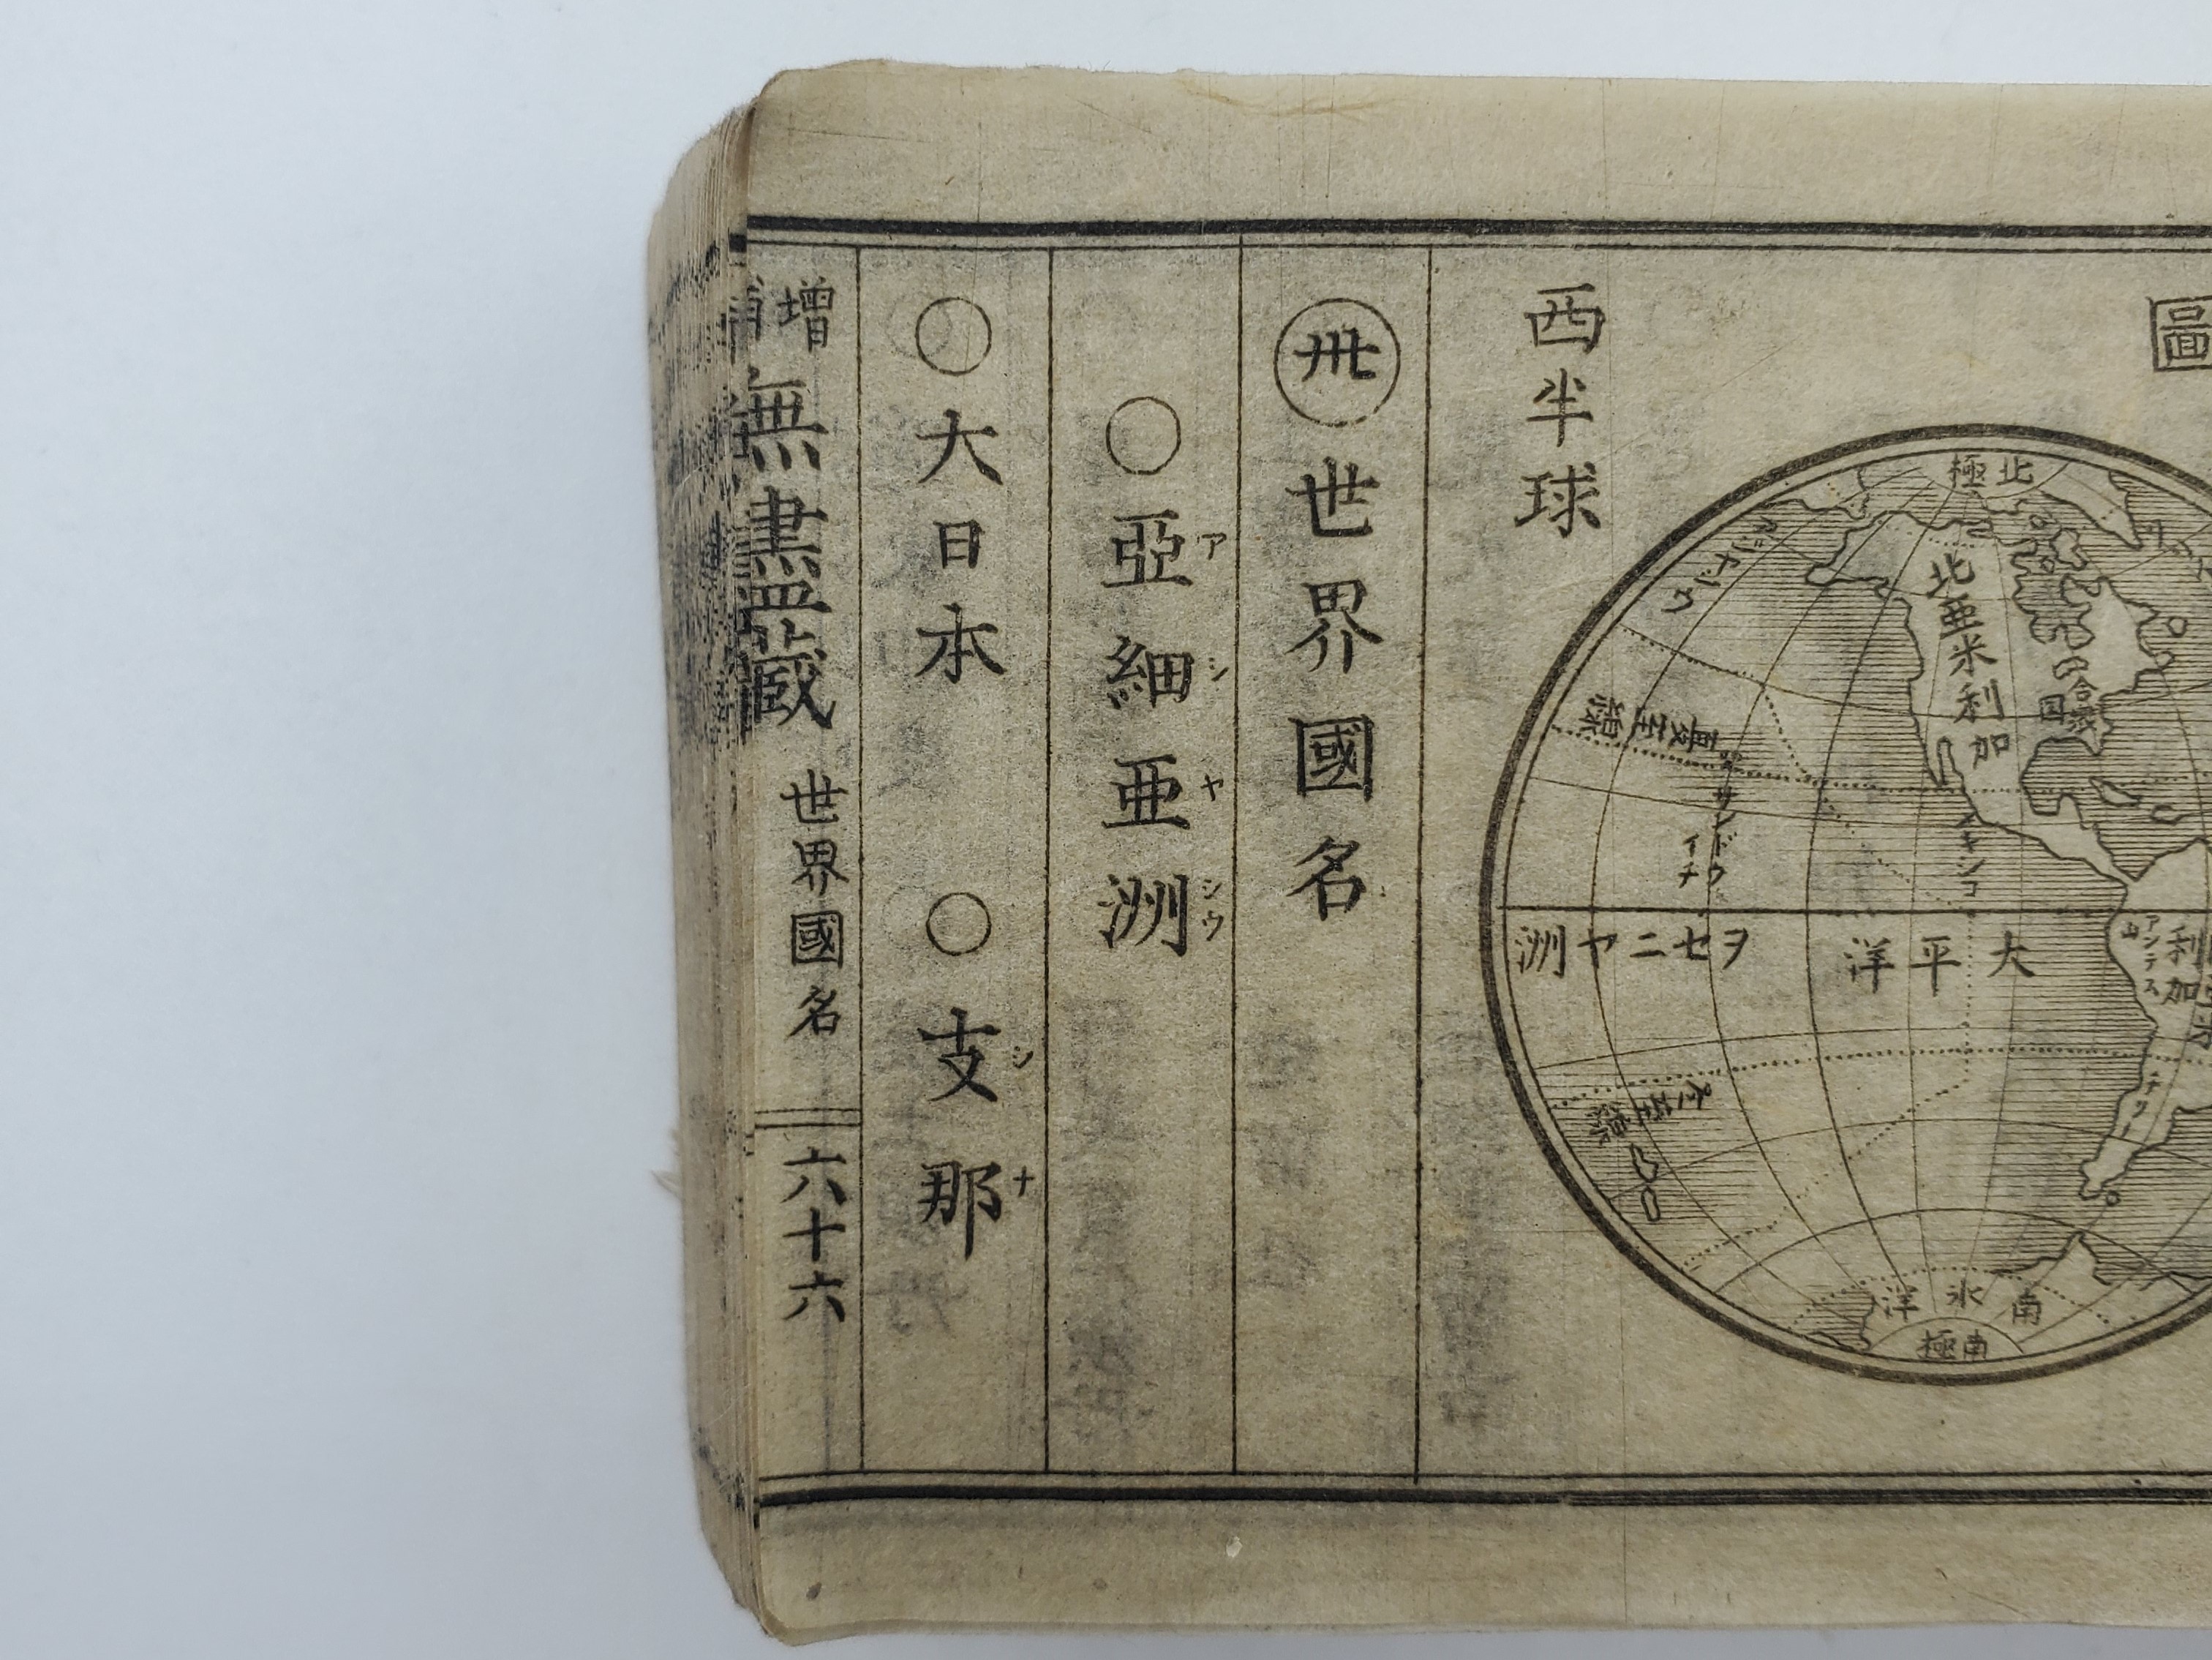 圖
西半球
北極
北亜米利加
合衆国
メキシコ
夏至線
サンドウイチ
大平洋
ヲセニヤ洲
アンデス山
利加
チリー
冬至線
南氷洋
南極
卅 世界國名
○亞細亜洲
アシヤシウ
○大日本 ○支那
シナ
增補 無盡蔵 世界國名 六十六